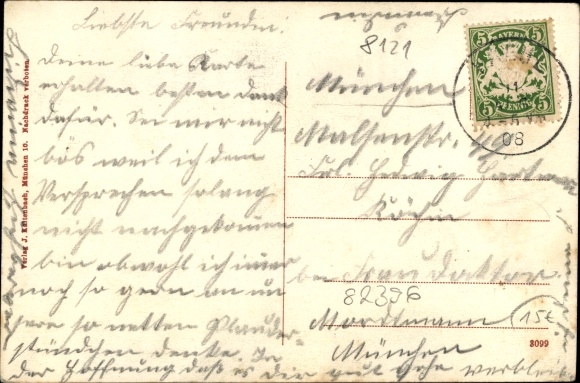 Liebste Freundin.
Deine liebe Karte
erhalten besten Dank
dafür. Sei mir nicht
bös weil ich dem
Versprechen solang
nicht nachgekommen
bin obwohl ich immer
noch so gern an un
sere so netten Plauder
stündchen denke. In
der Hoffnung daß es Dir gut geht verbleibe
8121
BAYERN
5 5
5 PFENNIG 5
11
08
München
Malsenstr.
Frl. Hedwig
Köchin
bei Frau Doktor
82396
Mordtmann
15€
München
8099
Verlag J. Kaltenbach, München 10. Nachdruck verboten.